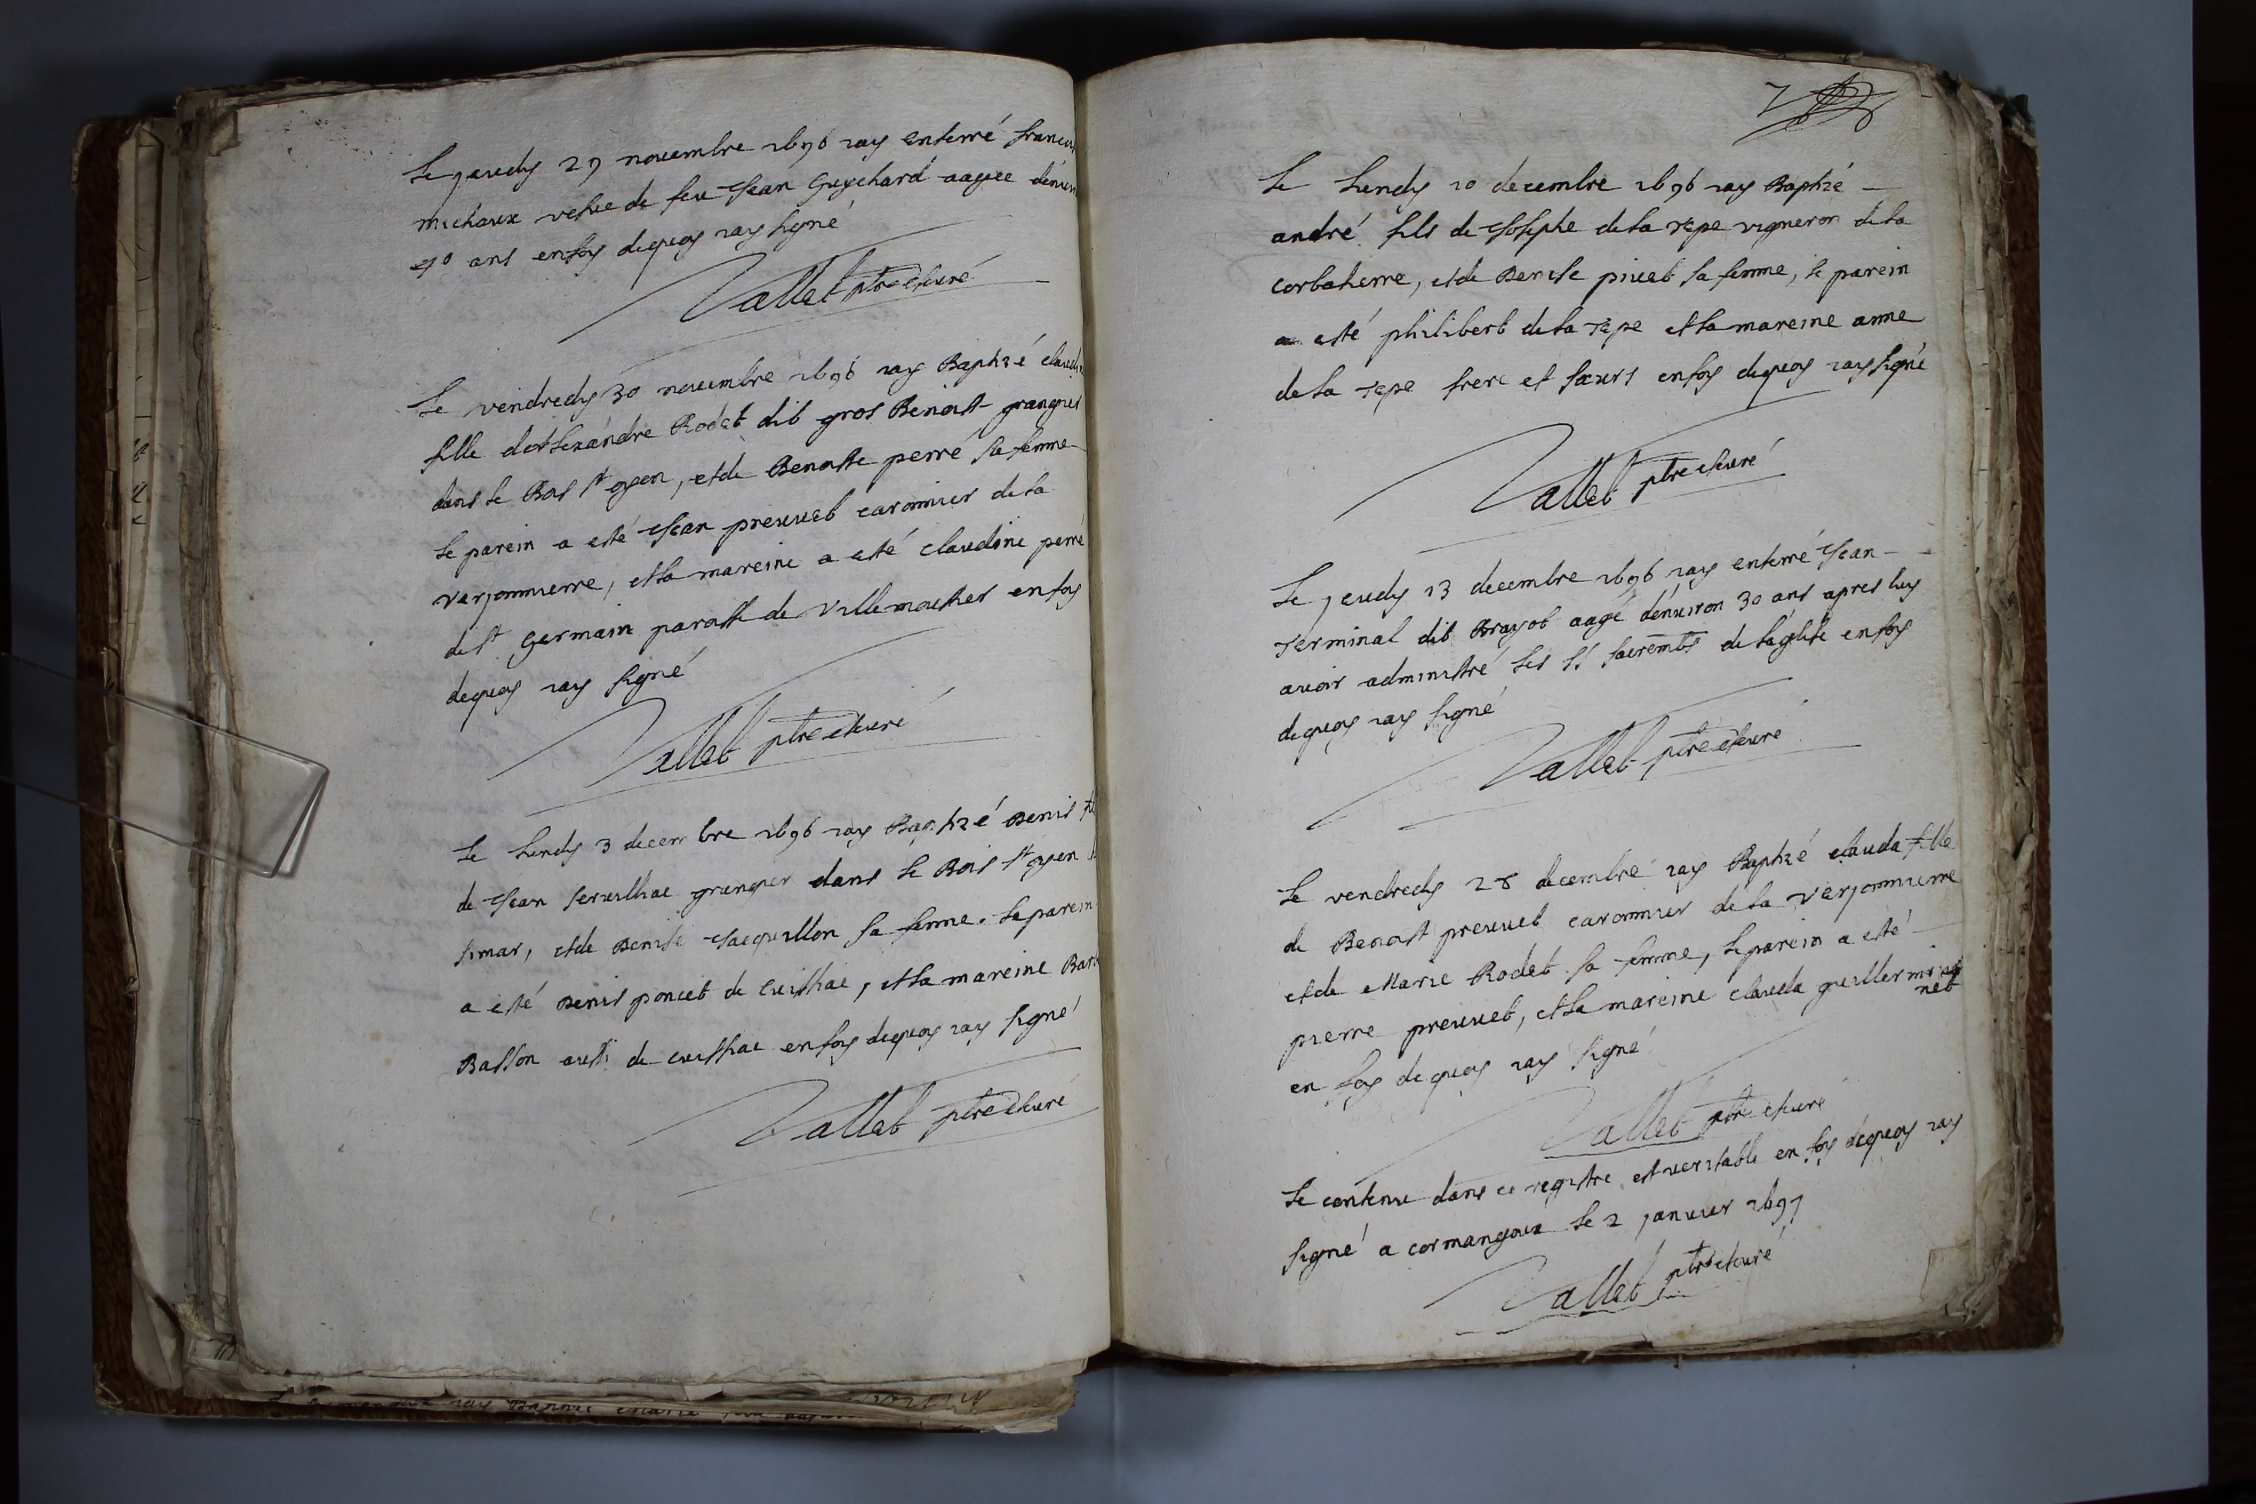 Le jeudy 29 novembre 1696 iay enterré
michaux vefue de feu Jean Guychard aagee
40 ans en foy dequoy iay signé
Vallet ptre & curé
Le vendredy 30 novembre 1696 iay Baptizé
fille d'Allexandre Rodet dit gros Benoist
dans le Bois st oyen, et de Benoiste perré sa femme
Le parein a esté Jean preuuet caronnier de la
verjonnierre, et la mareine a esté claudine perré
de st Germain paroisse de Villemoutier en foy
dequoy iay signé
Vallet ptre & curé
Le Lundy 3 decembre 1696 iay Baptizé Denis
de Jean granger dans le Bois st oyen
simar, et de Denise Jacquillon sa femme. Le parein
a esté Denis poncet de Cuissiat, et la mareine
Basson aussi de cuissiat en foy dequoy iay signé
Vallet ptre & curé
7
Le Lundy 10 decembre 1696 iay Baptizé
andré fils de Josephe de la Tepe vigneron de la
corbaterre, et de Denise piuet sa femme, le parein
a esté philibert de la Tepe et la mareine anne
de la Tepe frere et sœurs en foy dequoy iay signé
Vallet ptre & curé
Le jeudy 13 decembre 1696 iay enterré Jean
Terminal dit Brayot aagé d'enuiron 30 ans apres luy
auoir administré les sts sacremts de l'églile en foy
dequoy iay signé
Vallet ptre & curé
Le vendredy 28 decembre iay Baptizé clauda fille
de Benoist preuuet caronnier de la verjonnierre
et de Marie Rodet sa femme, le parein a esté
pierre preuuet, et la mareine clauda guillermi
net
en foy de quoy iay signé
Vallet ptre & curé
Le contenu dans ce registre est veritable en foy dequoy iay
signé a cormangoux le 2 januier 1697
Vallet ptre & curé